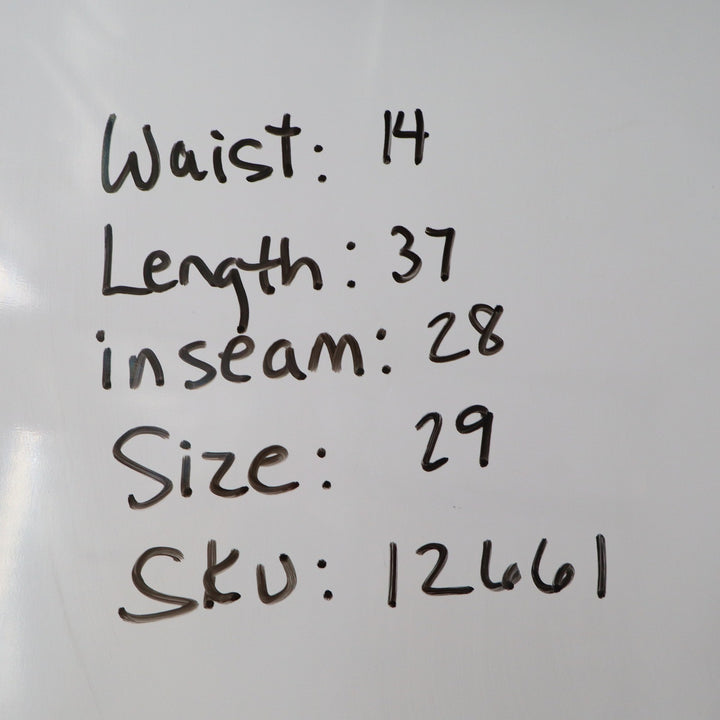 Waist: 14
Length: 37
inseam: 28
Size: 29
SKU: 12661